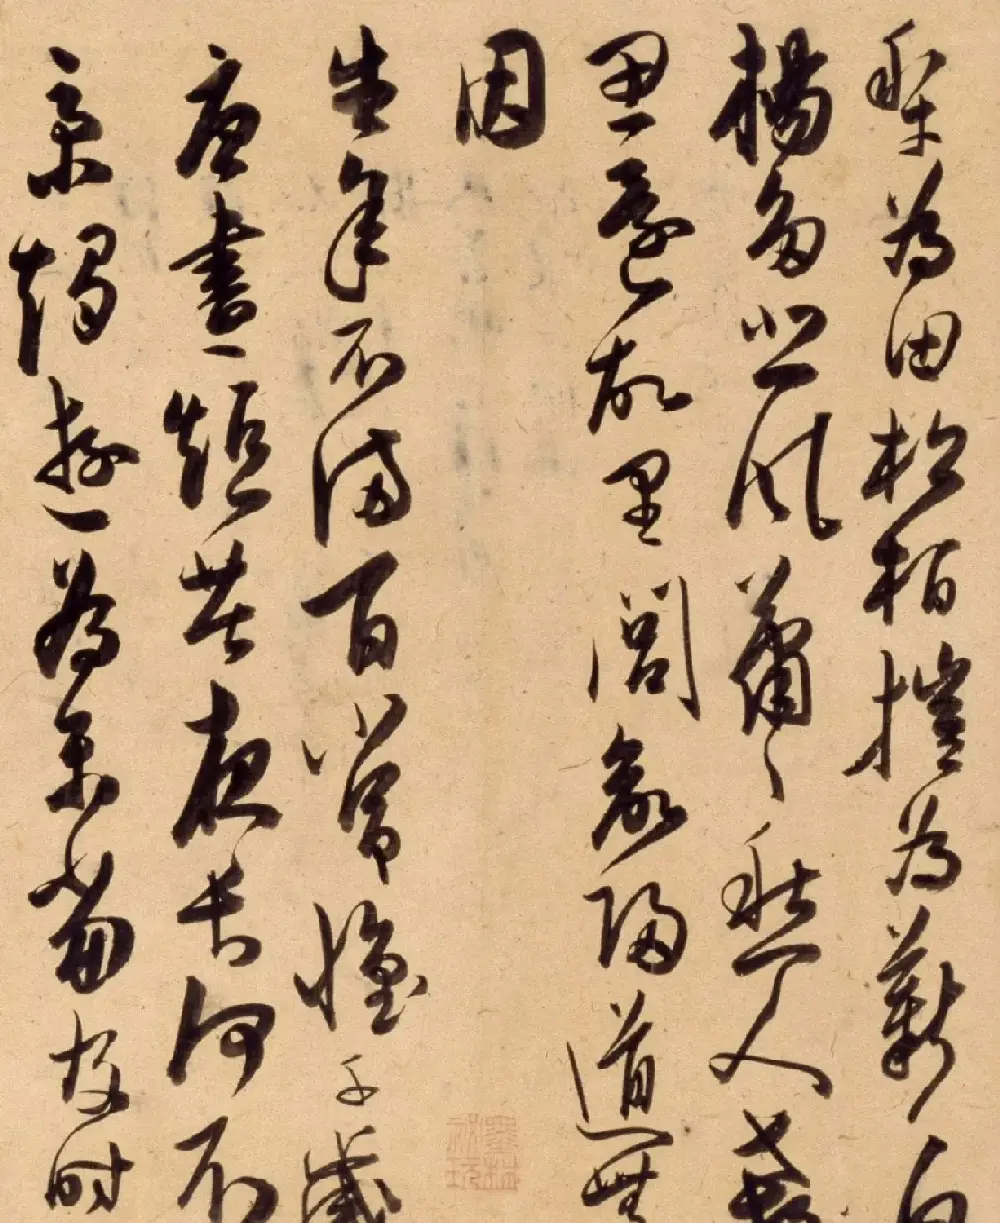 犁為田松柏摧為薪白
楊多悲風蕭〻愁人
思還故里閭欲歸道無
因
生年不滿百常懷千歲
憂晝短苦夜長何不
秉燭遊為樂當及時